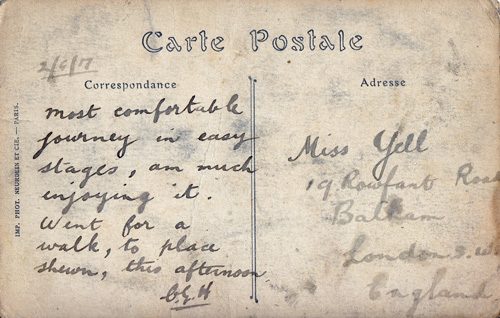 Carte Postale
2/6/17
Correspondance
most comfortable
journey in easy
stages, am much
enjoying it.
Went for a
walk, to place
shewn, this afternoon
IMP. PHOT. NEURDEIN ET CIE. — PARIS.
Adresse
Miss Yell
19 Rowfant Road
Balham
London S.W.
England